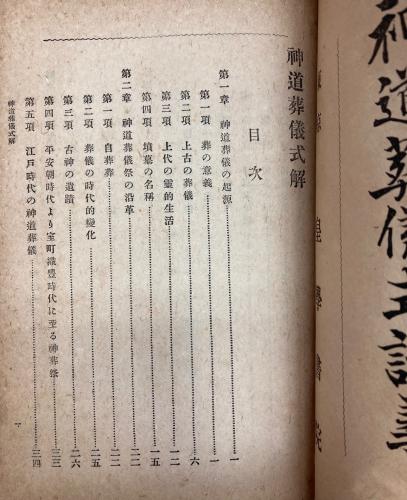 神道葬儀式
皇學書院
神道葬儀式解
目次
第一章 神道葬儀の起源……一
第一項 葬の意義……一
第二項 上古の葬儀……六
第三項 上代の靈的生活……一二
第四項 墳墓の名稱……一五
第二章 神道葬儀祭の沿革……二二
第一項 自葬葬……二二
第二項 葬儀の時代的變化……二五
第三項 古神の遺蹟……二六
第四項 平安朝時代より室町織豊時代に至る神葬祭……三三
第五項 江戸時代の神道葬儀……三四
神道葬儀式解
一